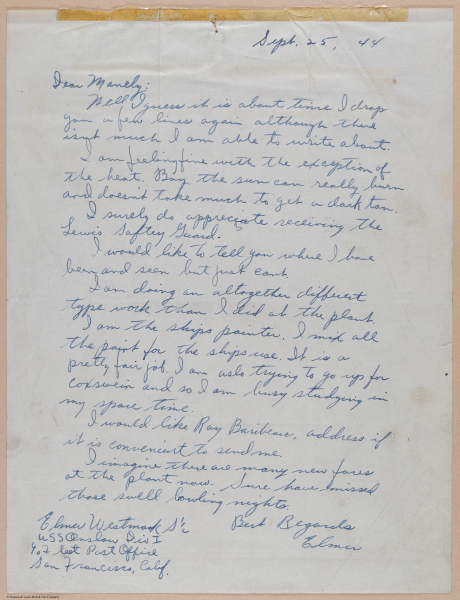 Sept. 25, 44
Dear Manely:
Well I guess it is about time I drop
you a few lines again although there
isn't much I am able to write about.
I am feeling fine with the exception of
the heat. Boy the sun can really burn
and doesn't take much to get a dark tan.
I surely do appreciate receiving the
Lewis Saftey Guard.
I would like to tell you where I have
been and seen but just can't
I am doing an altogether different
type work than I did at the plant.
I am the ships painter. I mix all
the paint for the ships use. It is a
pretty fair job. I am aslo trying to go up for
coxswein and so I am busy studying in
my spare time.
I would like Ray Baribeau, address if
it is convenient to send me.
I imagine there are many new faces
at the plant now. Sure have missed
those swell bowling nights.
Best Regards
Elmer
Elmer Westmark S 1/c
USS Onslow Div I
% Fleet Post Office
San Francisco, Calif.